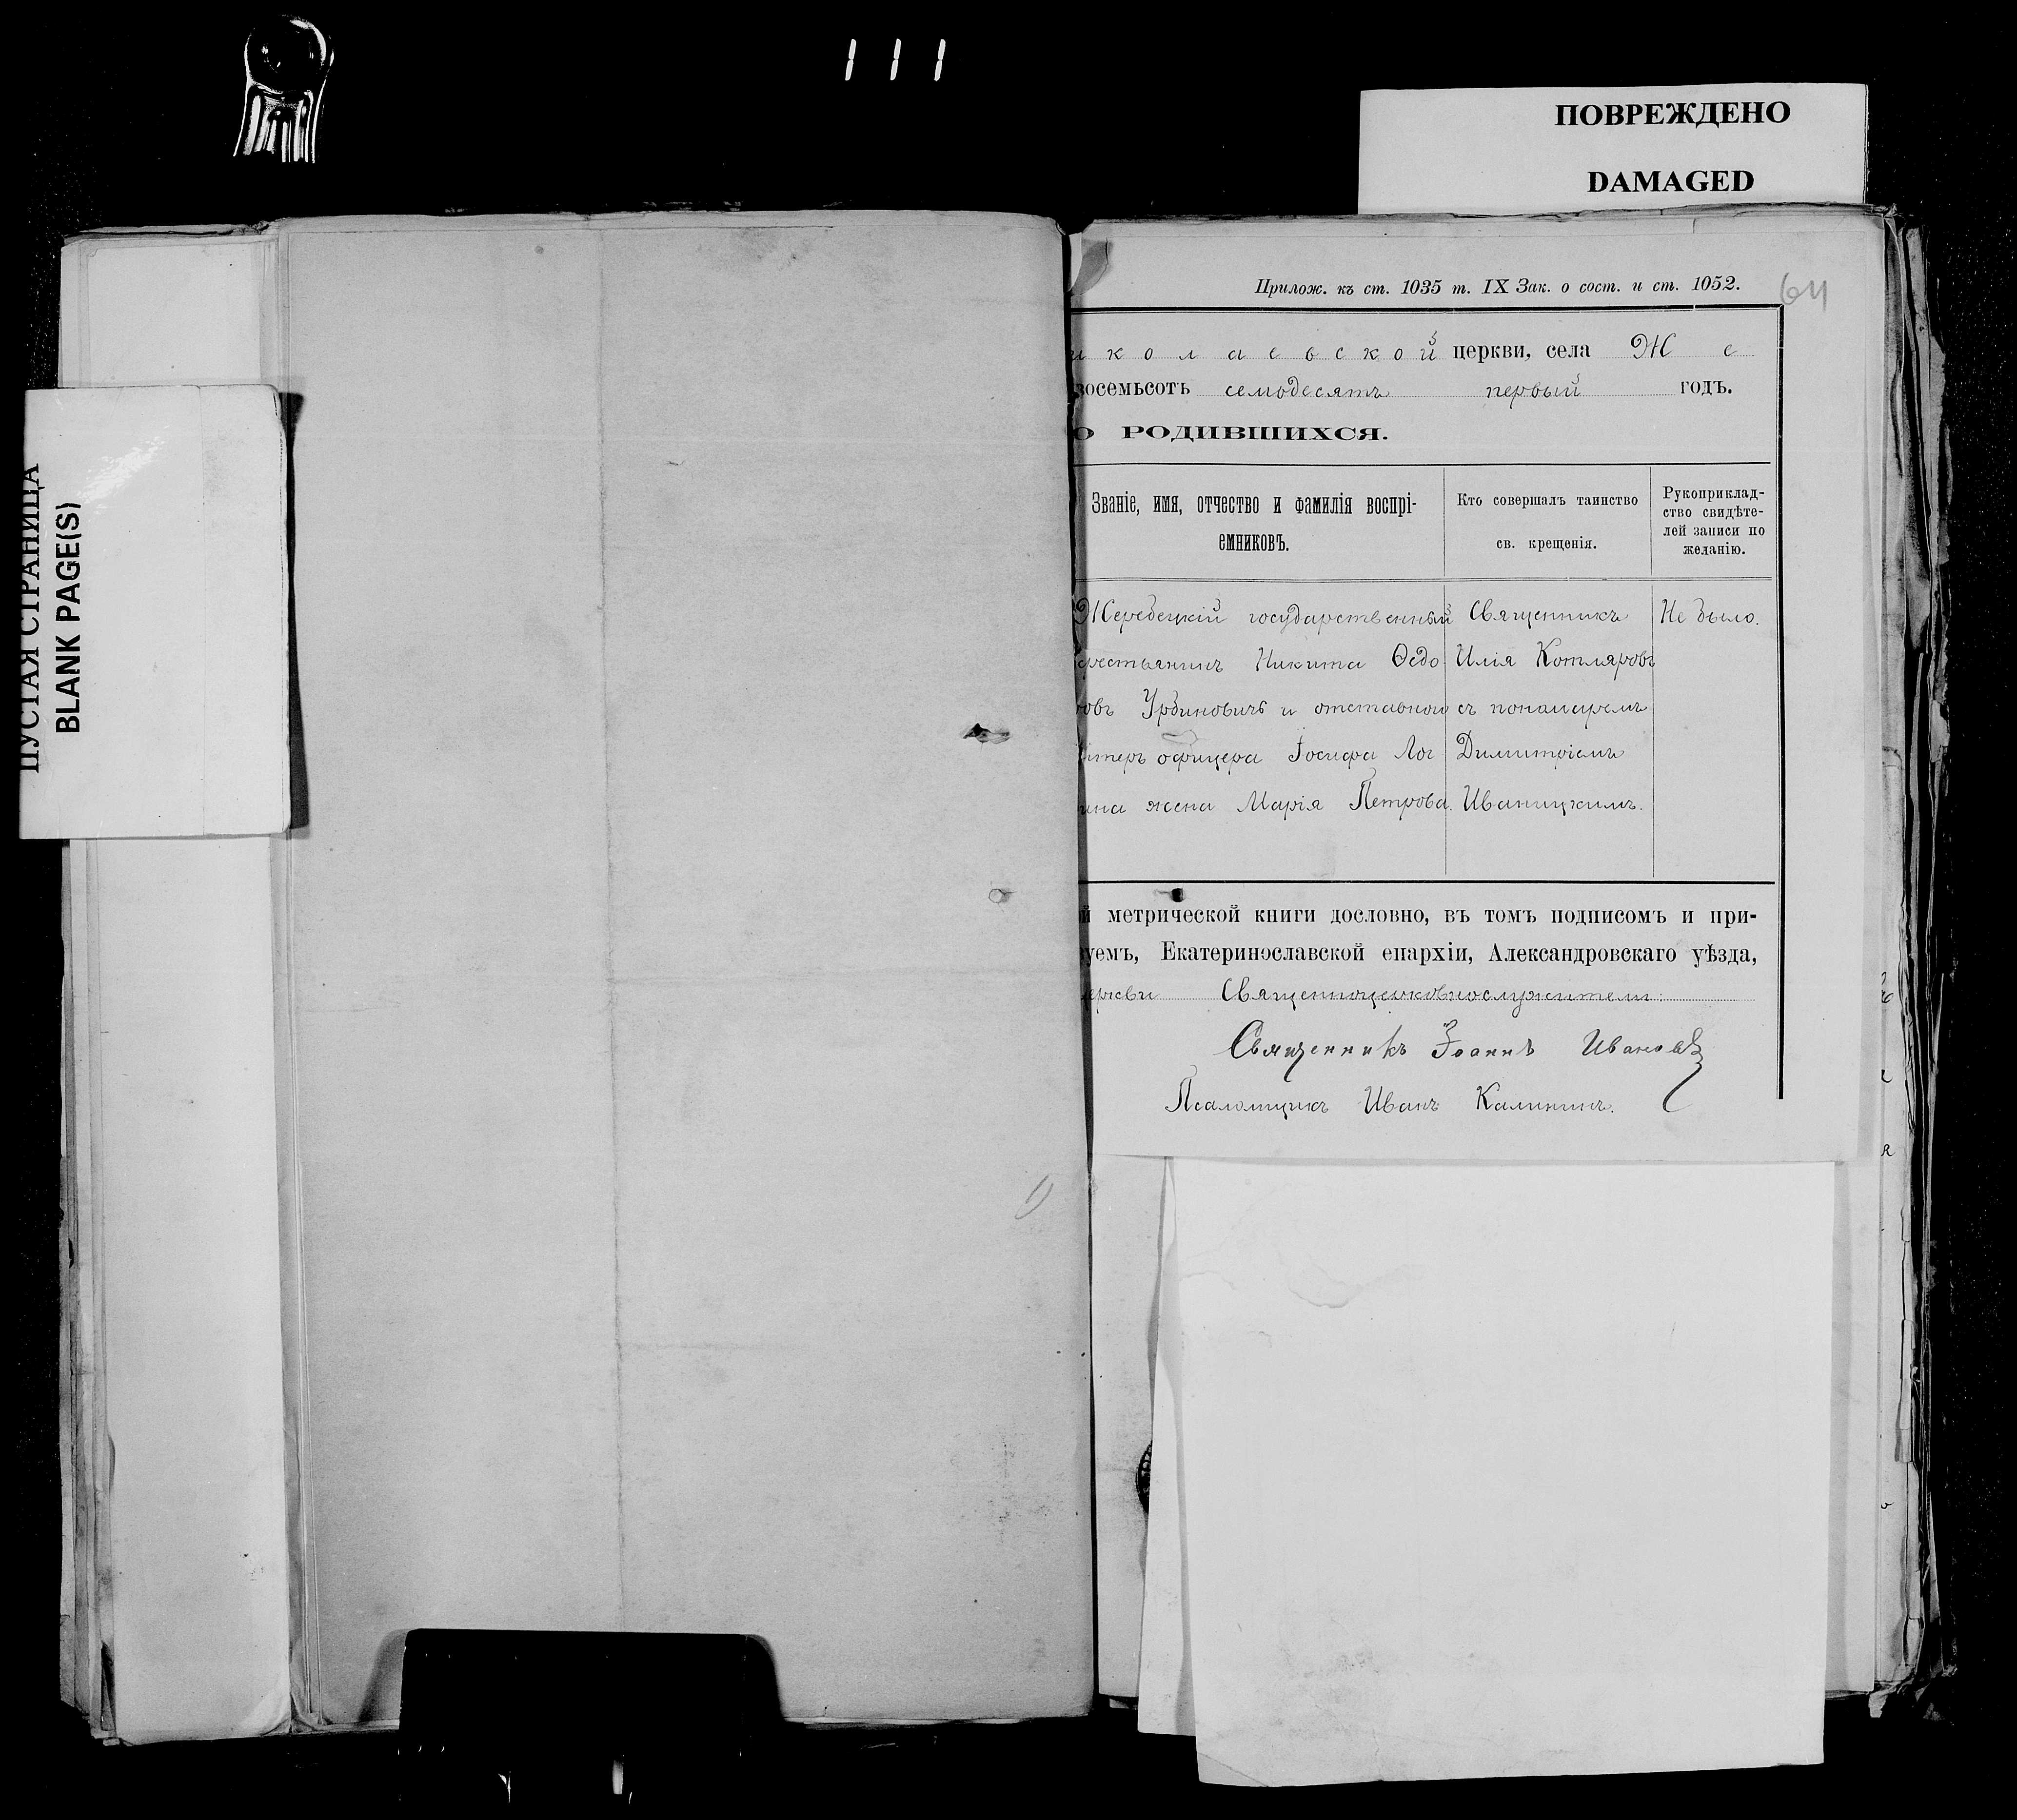 111
ПОВРЕЖДЕНО
DAMAGED
ПУСТАЯ СТРАНИЦА
BLANK PAGE(S)
Прилож. къ ст. 1035 т. IX Зак. о сост. и ст. 1052.
64
иколаевской церкви, села Же
восемьсотъ семьдесятъ первый годъ.
О РОДИВШИХСЯ.
Званіе, имя, отчество и фамилія воспрі-
емниковъ.
Кто совершалъ таинство
св. крещенія.
Рукоприклад-
ство свидѣте-
лей записи по
желанію.
Жеребецкій государственный
крестьянинъ Никита Ѳедо
ровъ Урбиновичъ и отставнои
унтеръ офицера Іосифа Лог
ина жена Марія Петрова.
Священникъ
Илія Котляровъ
съ понамаремъ
Димитріемъ
Иваницкимъ.
Не было.
ой метрической книги дословно, въ томъ подписомъ и при-
уемъ, Екатеринославской епархіи, Александровскаго уѣзда,
церкви Священноцерковнослужители:
Священникъ Іоаннъ Ивановъ
Псаломщикъ Иванъ Калининъ.